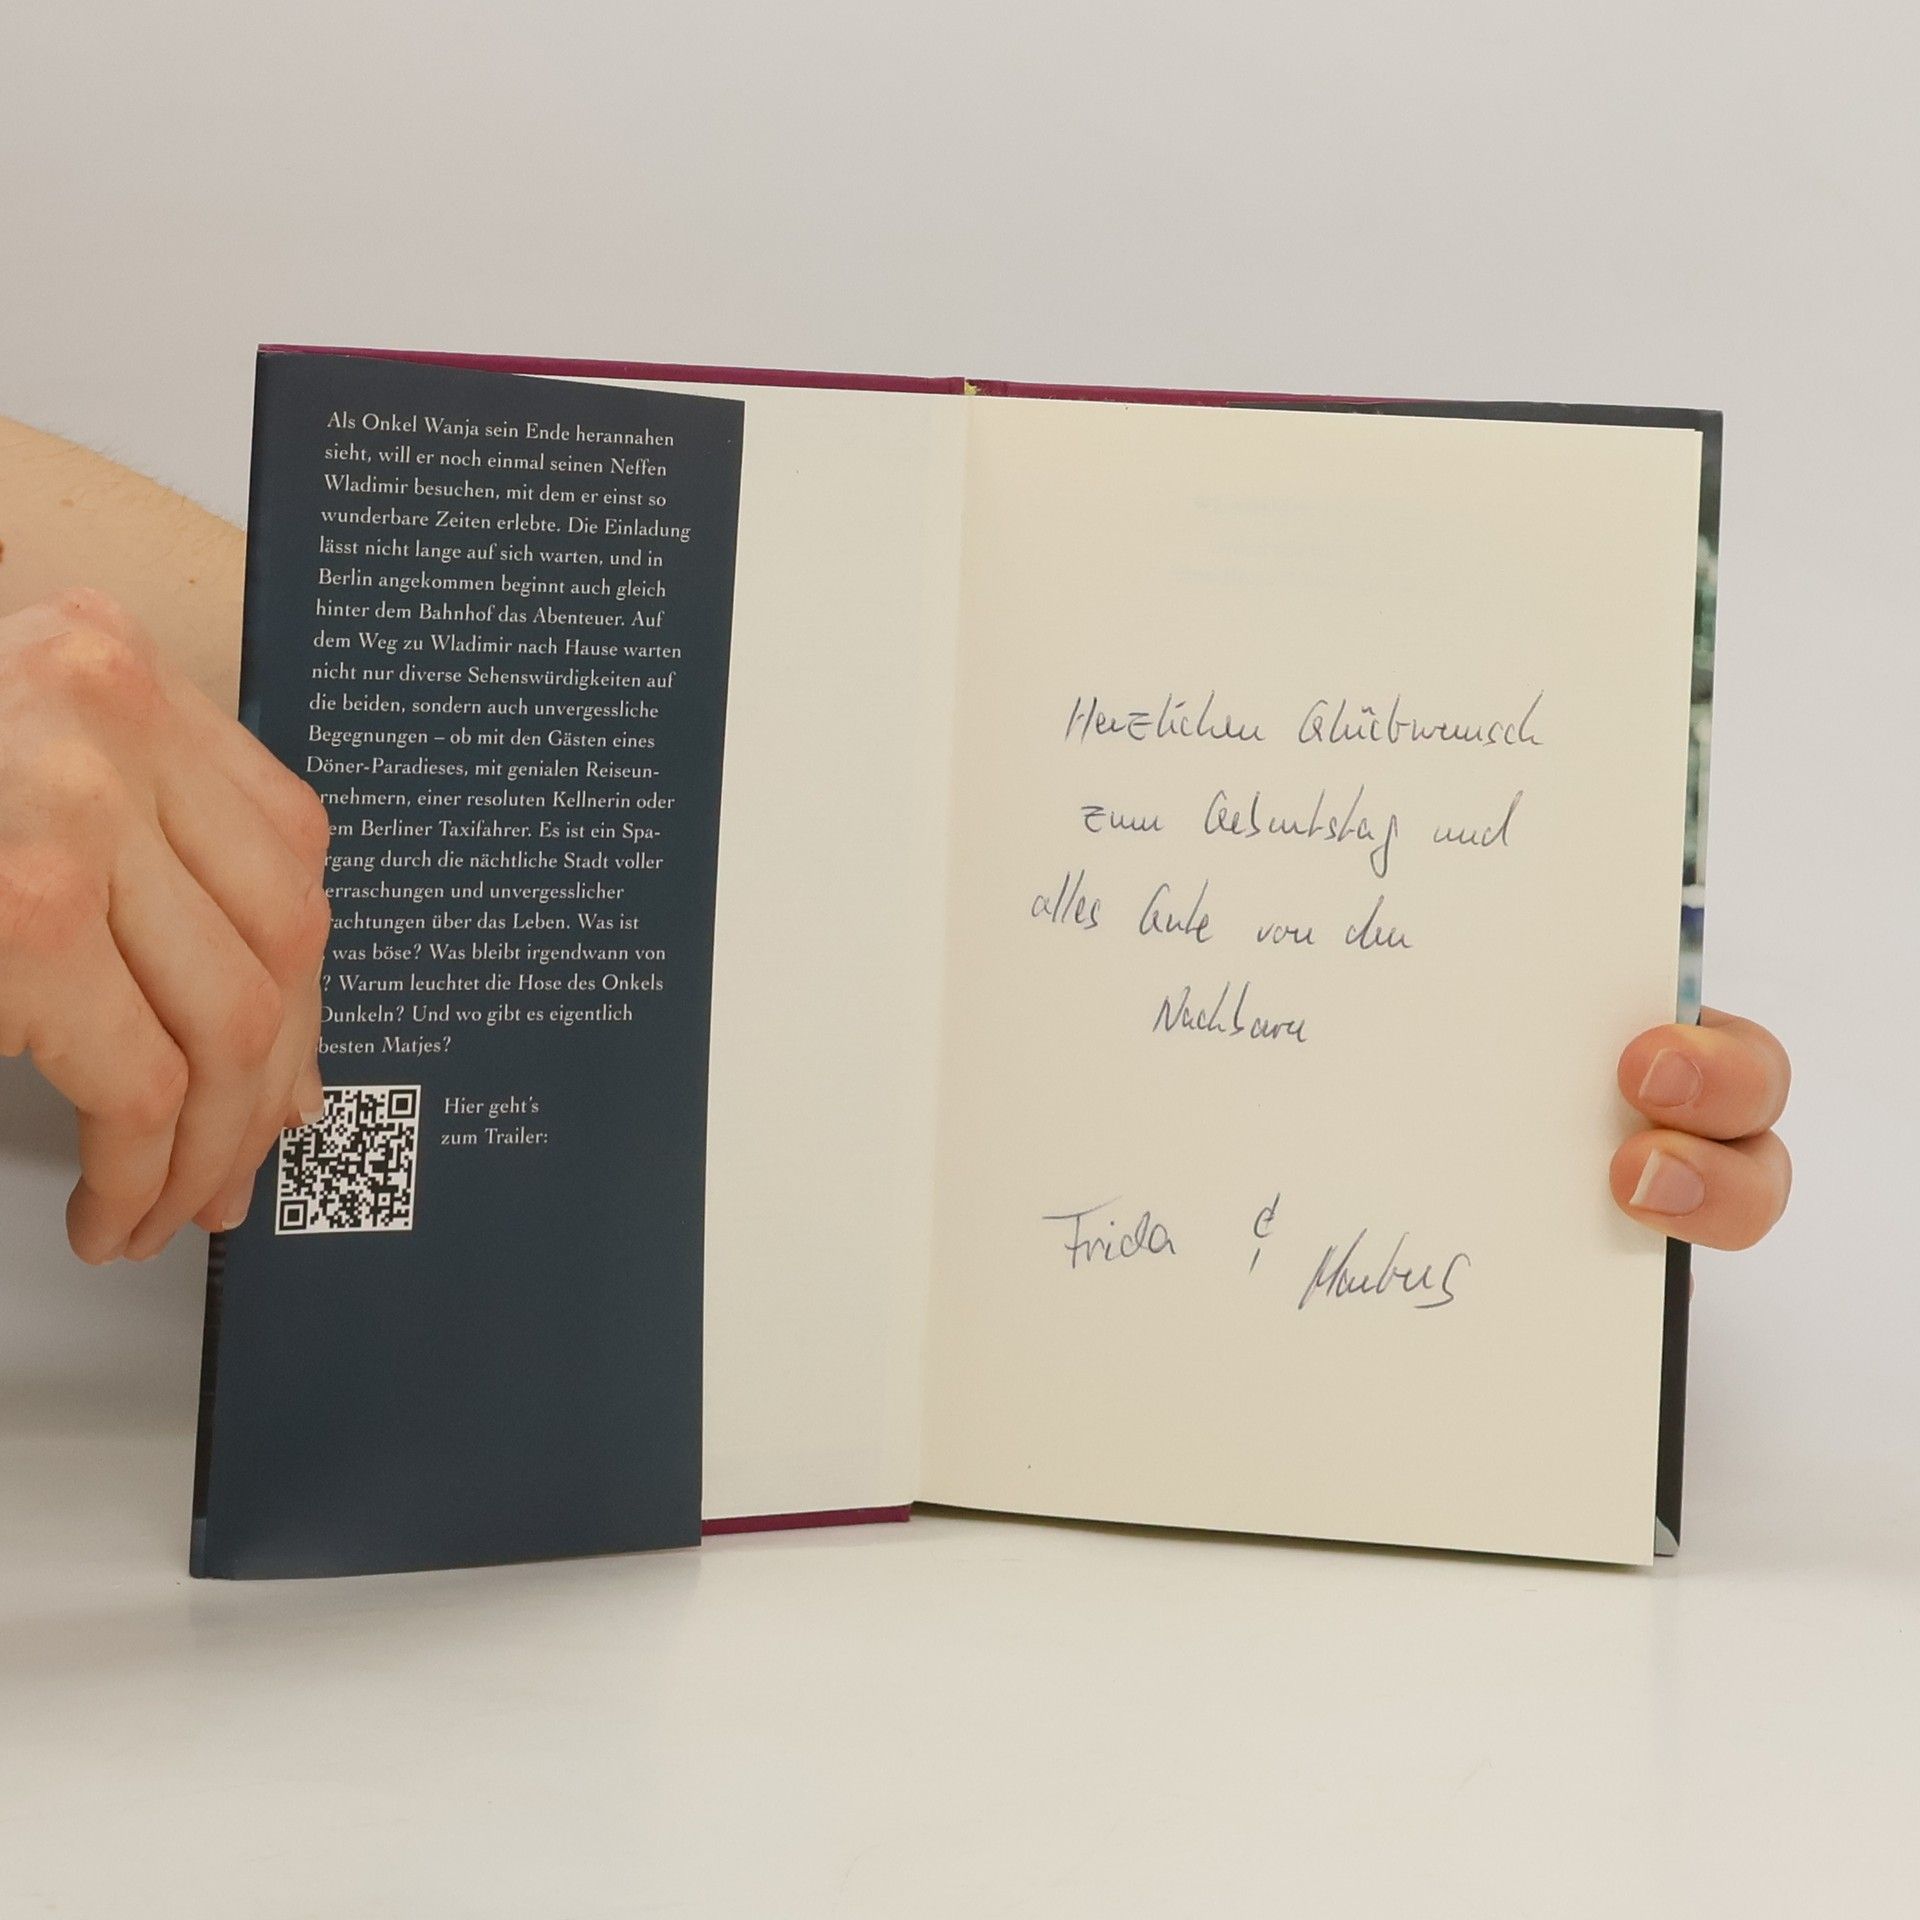 Als Onkel Wanja sein Ende herannahen
sieht, will er noch einmal seinen Neffen
Wladimir besuchen, mit dem er einst so
wunderbare Zeiten erlebte. Die Einladung
lässt nicht lange auf sich warten, und in
Berlin angekommen beginnt auch gleich
hinter dem Bahnhof das Abenteuer. Auf
dem Weg zu Wladimir nach Hause warten
nicht nur diverse Sehenswürdigkeiten auf
die beiden, sondern auch unvergessliche
Begegnungen – ob mit den Gästen eines
Döner-Paradieses, mit genialen Reiseun-
rnehmern, einer resoluten Kellnerin oder
em Berliner Taxifahrer. Es ist ein Spa-
rgang durch die nächtliche Stadt voller
erraschungen und unvergesslicher
rachtungen über das Leben. Was ist
, was böse? Was bleibt irgendwann von
? Warum leuchtet die Hose des Onkels
Dunkeln? Und wo gibt es eigentlich
besten Matjes?
Hier geht's
zum Trailer:
Herzlichen Glückwunsch
zum Geburtstag und
alles Gute von den
Nachbarn
Frida &
Markus